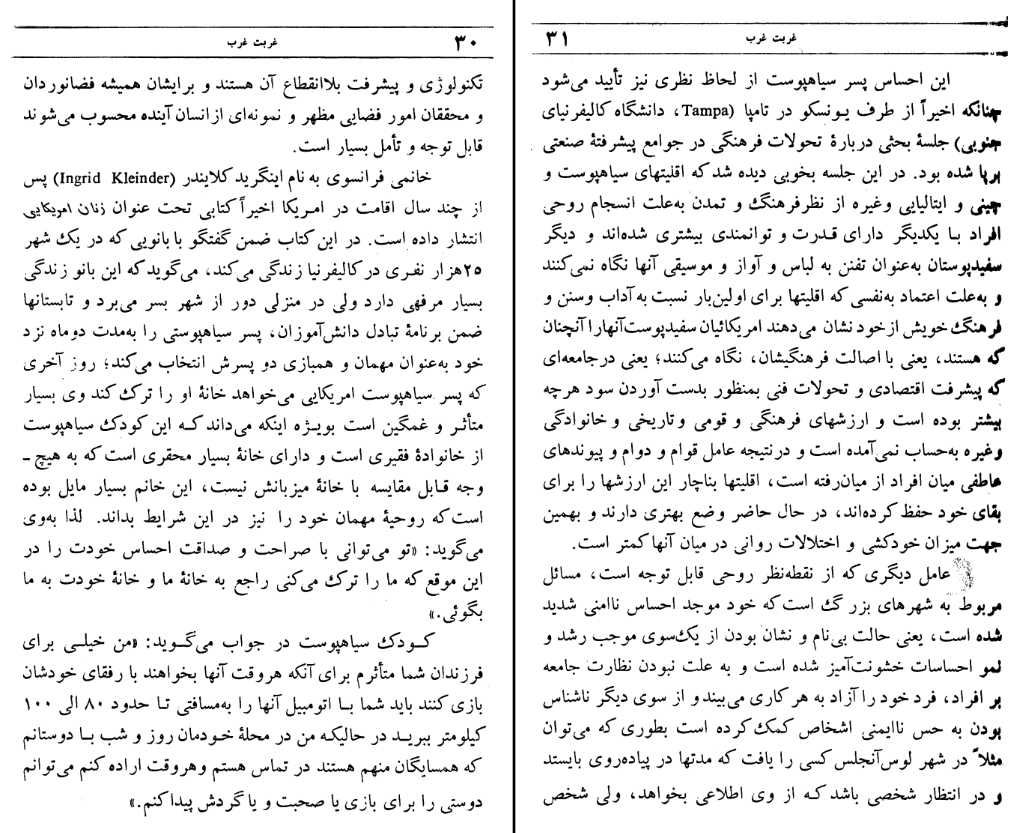 غربت غرب ۳۰
تکنولوژی و پیشرفت بلاانقطاع آن هستند و برایشان همیشه فضانوردان
و محققان امور فضایی مظهر و نمونه‌ای ازانسان آینده محسوب می‌شوند
قابل توجه و تأمل بسیار است.
خانمی فرانسوی به نام اینگرید کلایندر (Ingrid Kleinder) پس
از چند سال اقامت در امریکا اخیراً کتابی تحت عنوان زنان امریکایی
انتشار داده است. در این کتاب ضمن گفتگو با بانویی که در یک شهر
۲۵هزار نفری در کالیفرنیا زندگی می‌کند، می‌گوید که این بانو زندگی
بسیار مرفهی دارد ولی در منزلی دور از شهر بسر می‌برد و تابستانها
ضمن برنامهٔ تبادل دانش‌آموزان، پسر سیاهپوستی را به‌مدت دوماه نزد
خود به‌عنوان مهمان و همبازی دو پسرش انتخاب می‌کند؛ روز آخری
که پسر سیاهپوست امریکایی می‌خواهد خانهٔ او را ترک کند وی بسیار
متأثر و غمگین است بویژه اینکه می‌داند که این کودک سیاهپوست
از خانوادهٔ فقیری است و دارای خانهٔ بسیار محقری است که به هیچ ـ
وجه قابل مقایسه با خانهٔ میزبانش نیست، این خانم بسیار مایل بوده
است که روحیهٔ مهمان خود را نیز در این شرایط بداند. لذا به‌وی
می‌گوید: «تو می‌توانی با صراحت و صداقت احساس خودت را در
این موقع که ما را ترک می‌کنی راجع به خانهٔ ما و خانهٔ خودت به ما
بگوئی.»
کودک سیاهپوست در جواب می‌گوید: «من خیلی برای
فرزندان شما متأثرم برای آنکه هروقت آنها بخواهند با رفقای خودشان
بازی کنند باید شما با اتومبیل آنها را به‌مسافتی تا حدود ۸۰ الی ۱۰۰
کیلومتر ببرید در حالیکه من در محلهٔ خودمان روز و شب با دوستانم
که همسایگان منهم هستند در تماس هستم وهروقت اراده کنم می‌توانم
دوستی را برای بازی یا صحبت و یا گردش پیدا کنم.»
غربت غرب ۳۱
این احساس پسر سیاهپوست از لحاظ نظری نیز تأیید می‌شود
چنانکه اخیراً از طرف یونسکو در تامپا (Tampa، دانشگاه کالیفرنیای
جنوبی) جلسهٔ بحثی دربارهٔ تحولات فرهنگی در جوامع پیشرفتهٔ صنعتی
برپا شده بود. در این جلسه بخوبی دیده شد که اقلیتهای سیاهپوست و
چینی و ایتالیایی وغیره از نظرفرهنگ و تمدن به‌علت انسجام روحی
افراد با یکدیگر دارای قدرت و توانمندی بیشتری شده‌اند و دیگر
سفیدپوستان به‌عنوان تفنن به لباس و آواز و موسیقی آنها نگاه نمی‌کنند
و به‌علت اعتماد به‌نفسی که اقلیتها برای اولین‌بار نسبت به آداب وسنن و
فرهنگ خویش از خود نشان می‌دهند امریکائیان سفیدپوست‌آنهارا آنچنان
که هستند، یعنی با اصالت فرهنگیشان، نگاه می‌کنند؛ یعنی درجامعه‌ای
که پیشرفت اقتصادی و تحولات فنی بمنظور بدست آوردن سود هرچه
بیشتر بوده است و ارزشهای فرهنگی و قومی و تاریخی و خانوادگی
وغیره به‌حساب نمی‌آمده است و درنتیجه عامل قوام و دوام و پیوندهای
عاطفی میان افراد از میان‌رفته است، اقلیتها بناچار این ارزشها را برای
بقای خود حفظ کرده‌اند، در حال حاضر وضع بهتری دارند و بهمین
جهت میزان خودکشی و اختلالات روانی در میان آنها کمتر است.
عامل دیگری که از نقطه‌نظر روحی قابل توجه است، مسائل
مربوط به شهرهای بزرگ است که خود موجد احساس ناامنی شدید
شده است، یعنی حالت بی‌نام و نشان بودن از یک‌سوی موجب رشد و
نمو احساسات خشونت‌آمیز شده است و به علت نبودن نظارت جامعه
بر افراد، فرد خود را آزاد به هر کاری می‌بیند و از سوی دیگر ناشناس
بودن به حس ناایمنی اشخاص کمک کرده است بطوری که می‌توان
مثلاً در شهر لوس‌آنجلس کسی را یافت که مدتها در پیاده‌روی بایستد
و در انتظار شخصی باشد که از وی اطلاعی بخواهد، ولی شخص